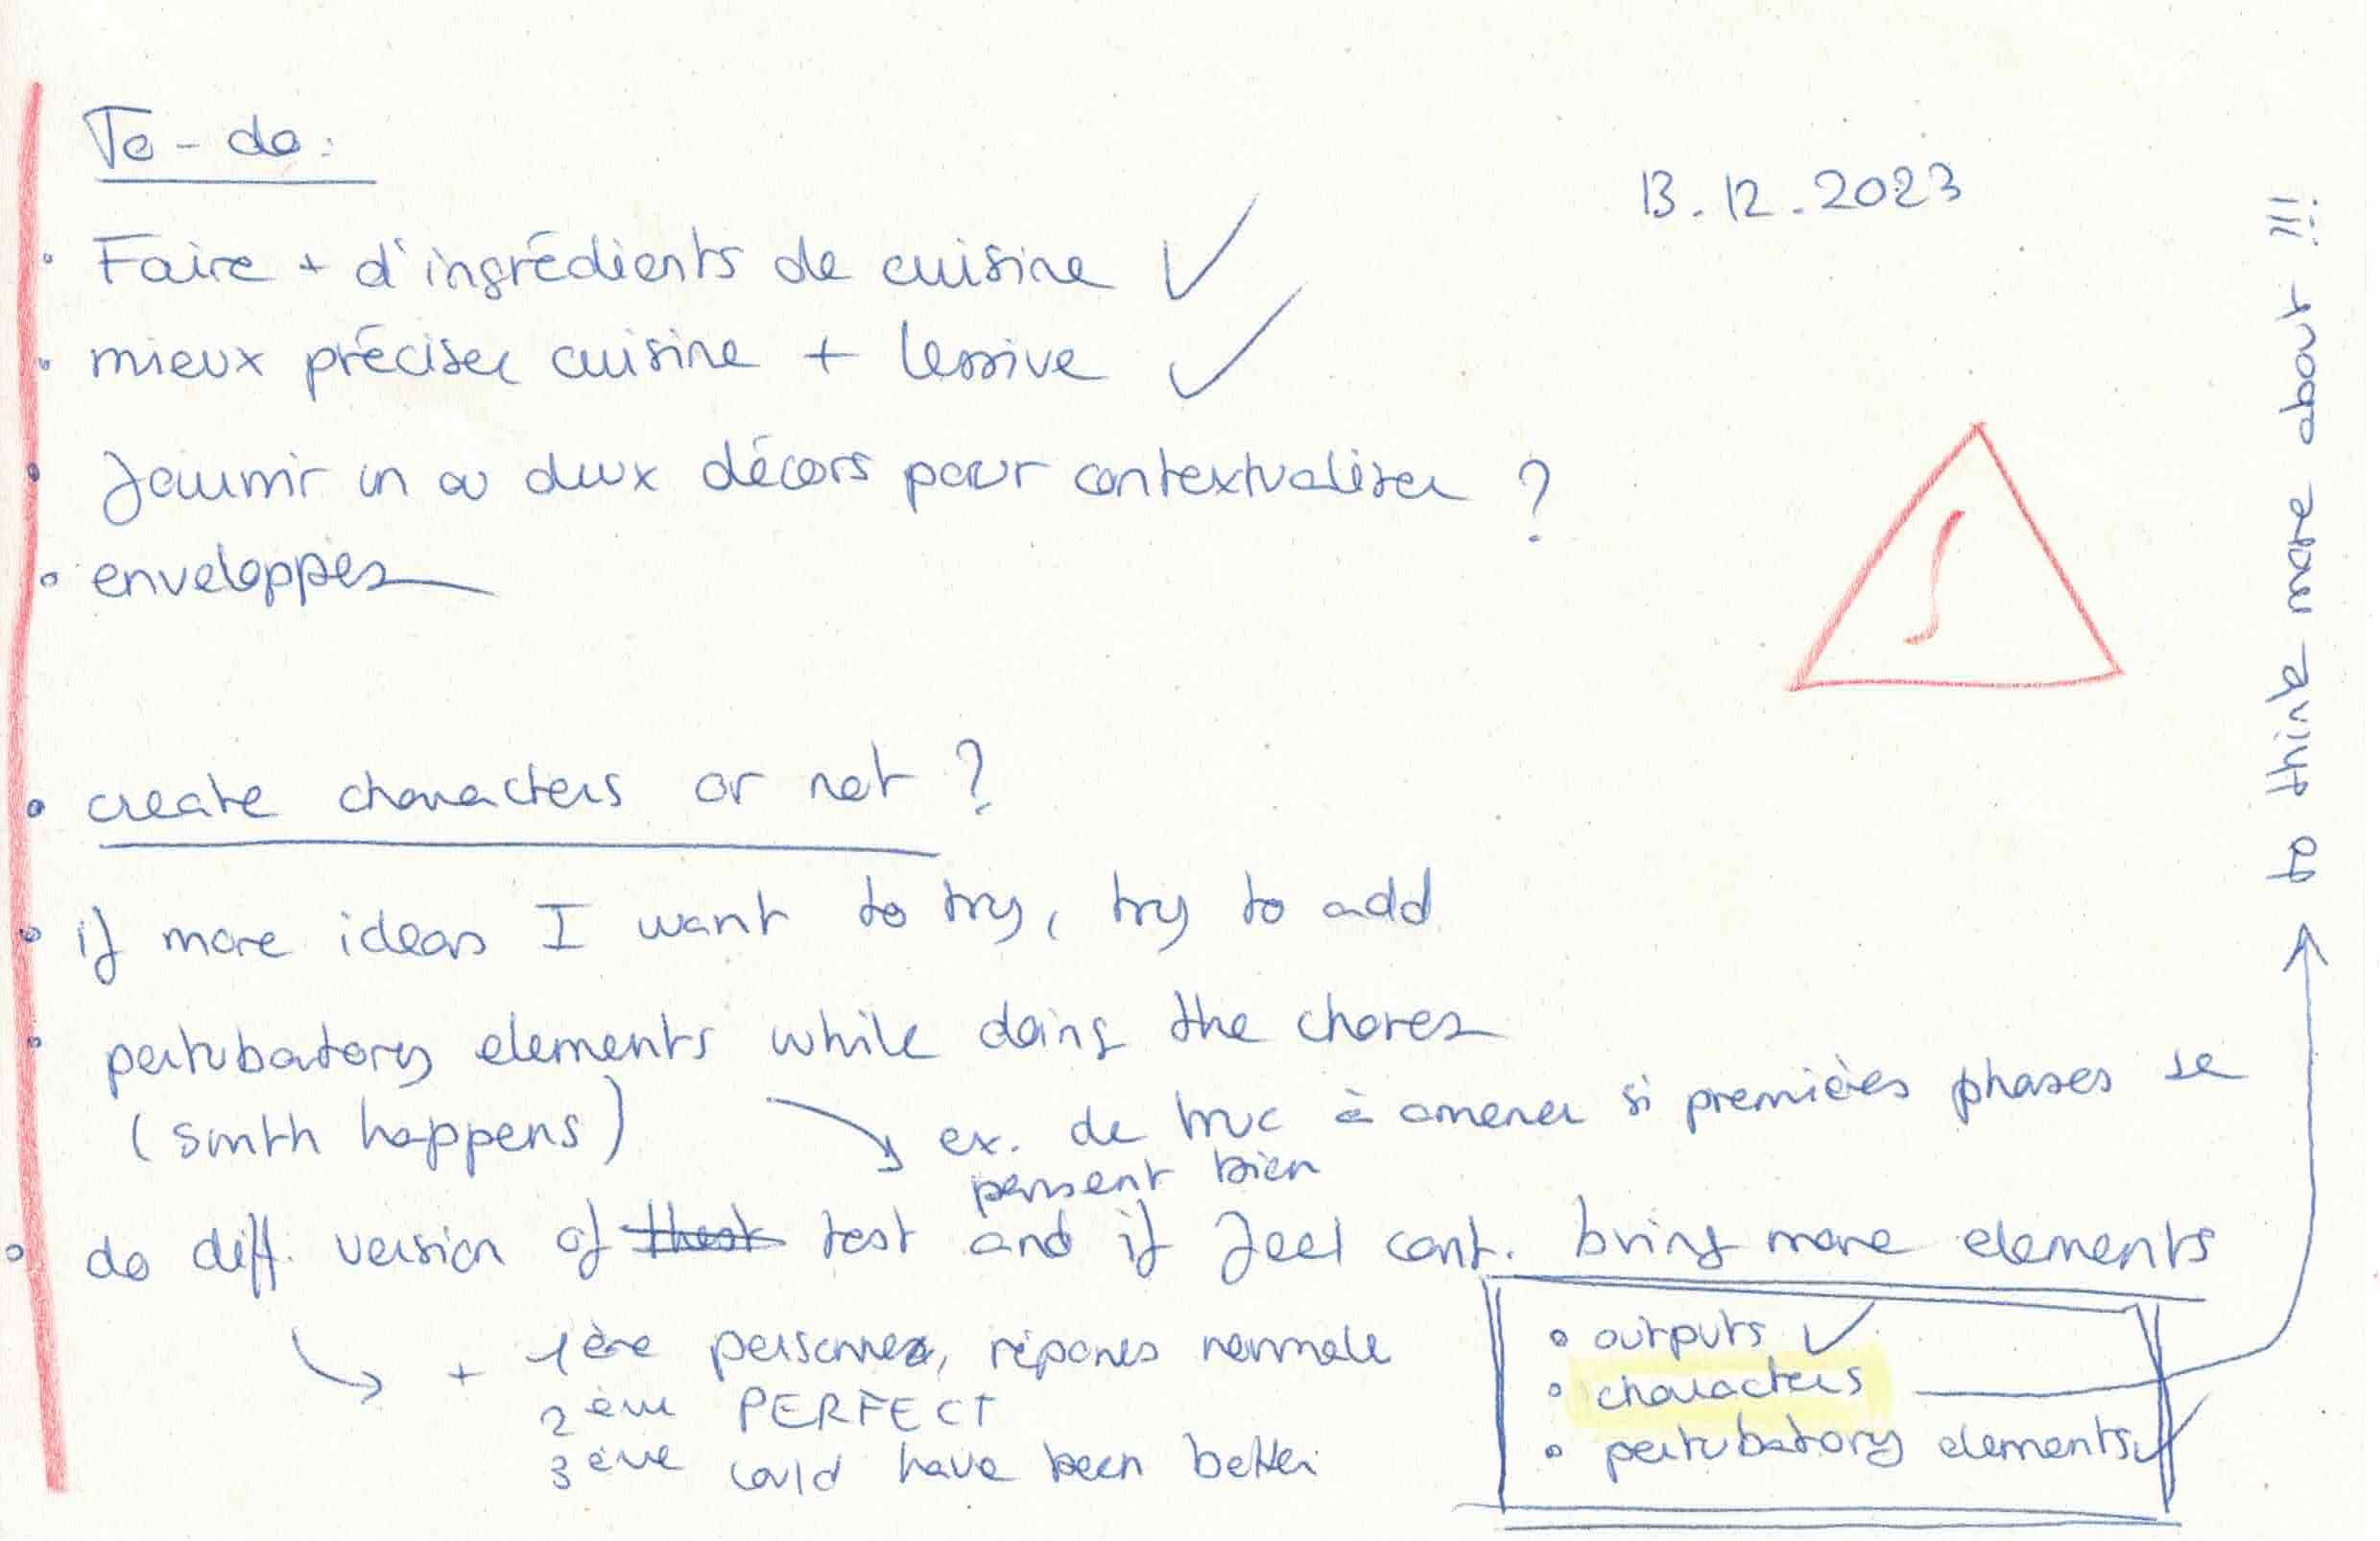 To-do:
13.12.2023
• Faire + d'ingrédients de cuisine ✓
• mieux préciser cuisine + lessive ✓
• fournir un ou deux décors pour contextualiser ?
• enveloppes
• create characters or not ?
• if more ideas I want to try, try to add
• pertubatory elements while doing the chores
(smth happens)
ex. de truc à amener si premières phases se
passent bien
• do diff. version of ~~thest~~ test and if feel conf. bring more elements
+ 1ère personne, répones normale
2ème PERFECT
3ème could have been better
• outputs ✓
• characters
• pertubatory elements ✓
to think more about !!!